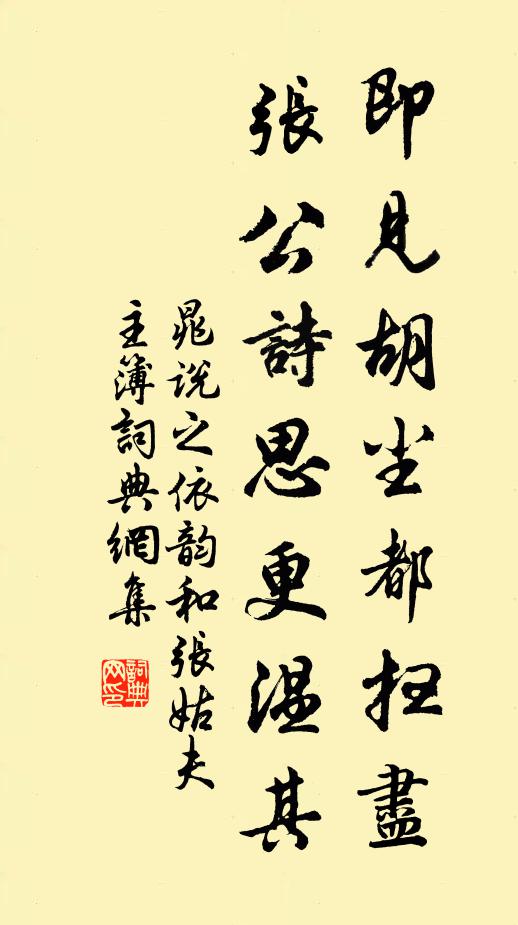 即見胡尘都扫盡
張公詩思更温其
晁說之依韵和張姑夫
主簿詞典網集
詞典
网印